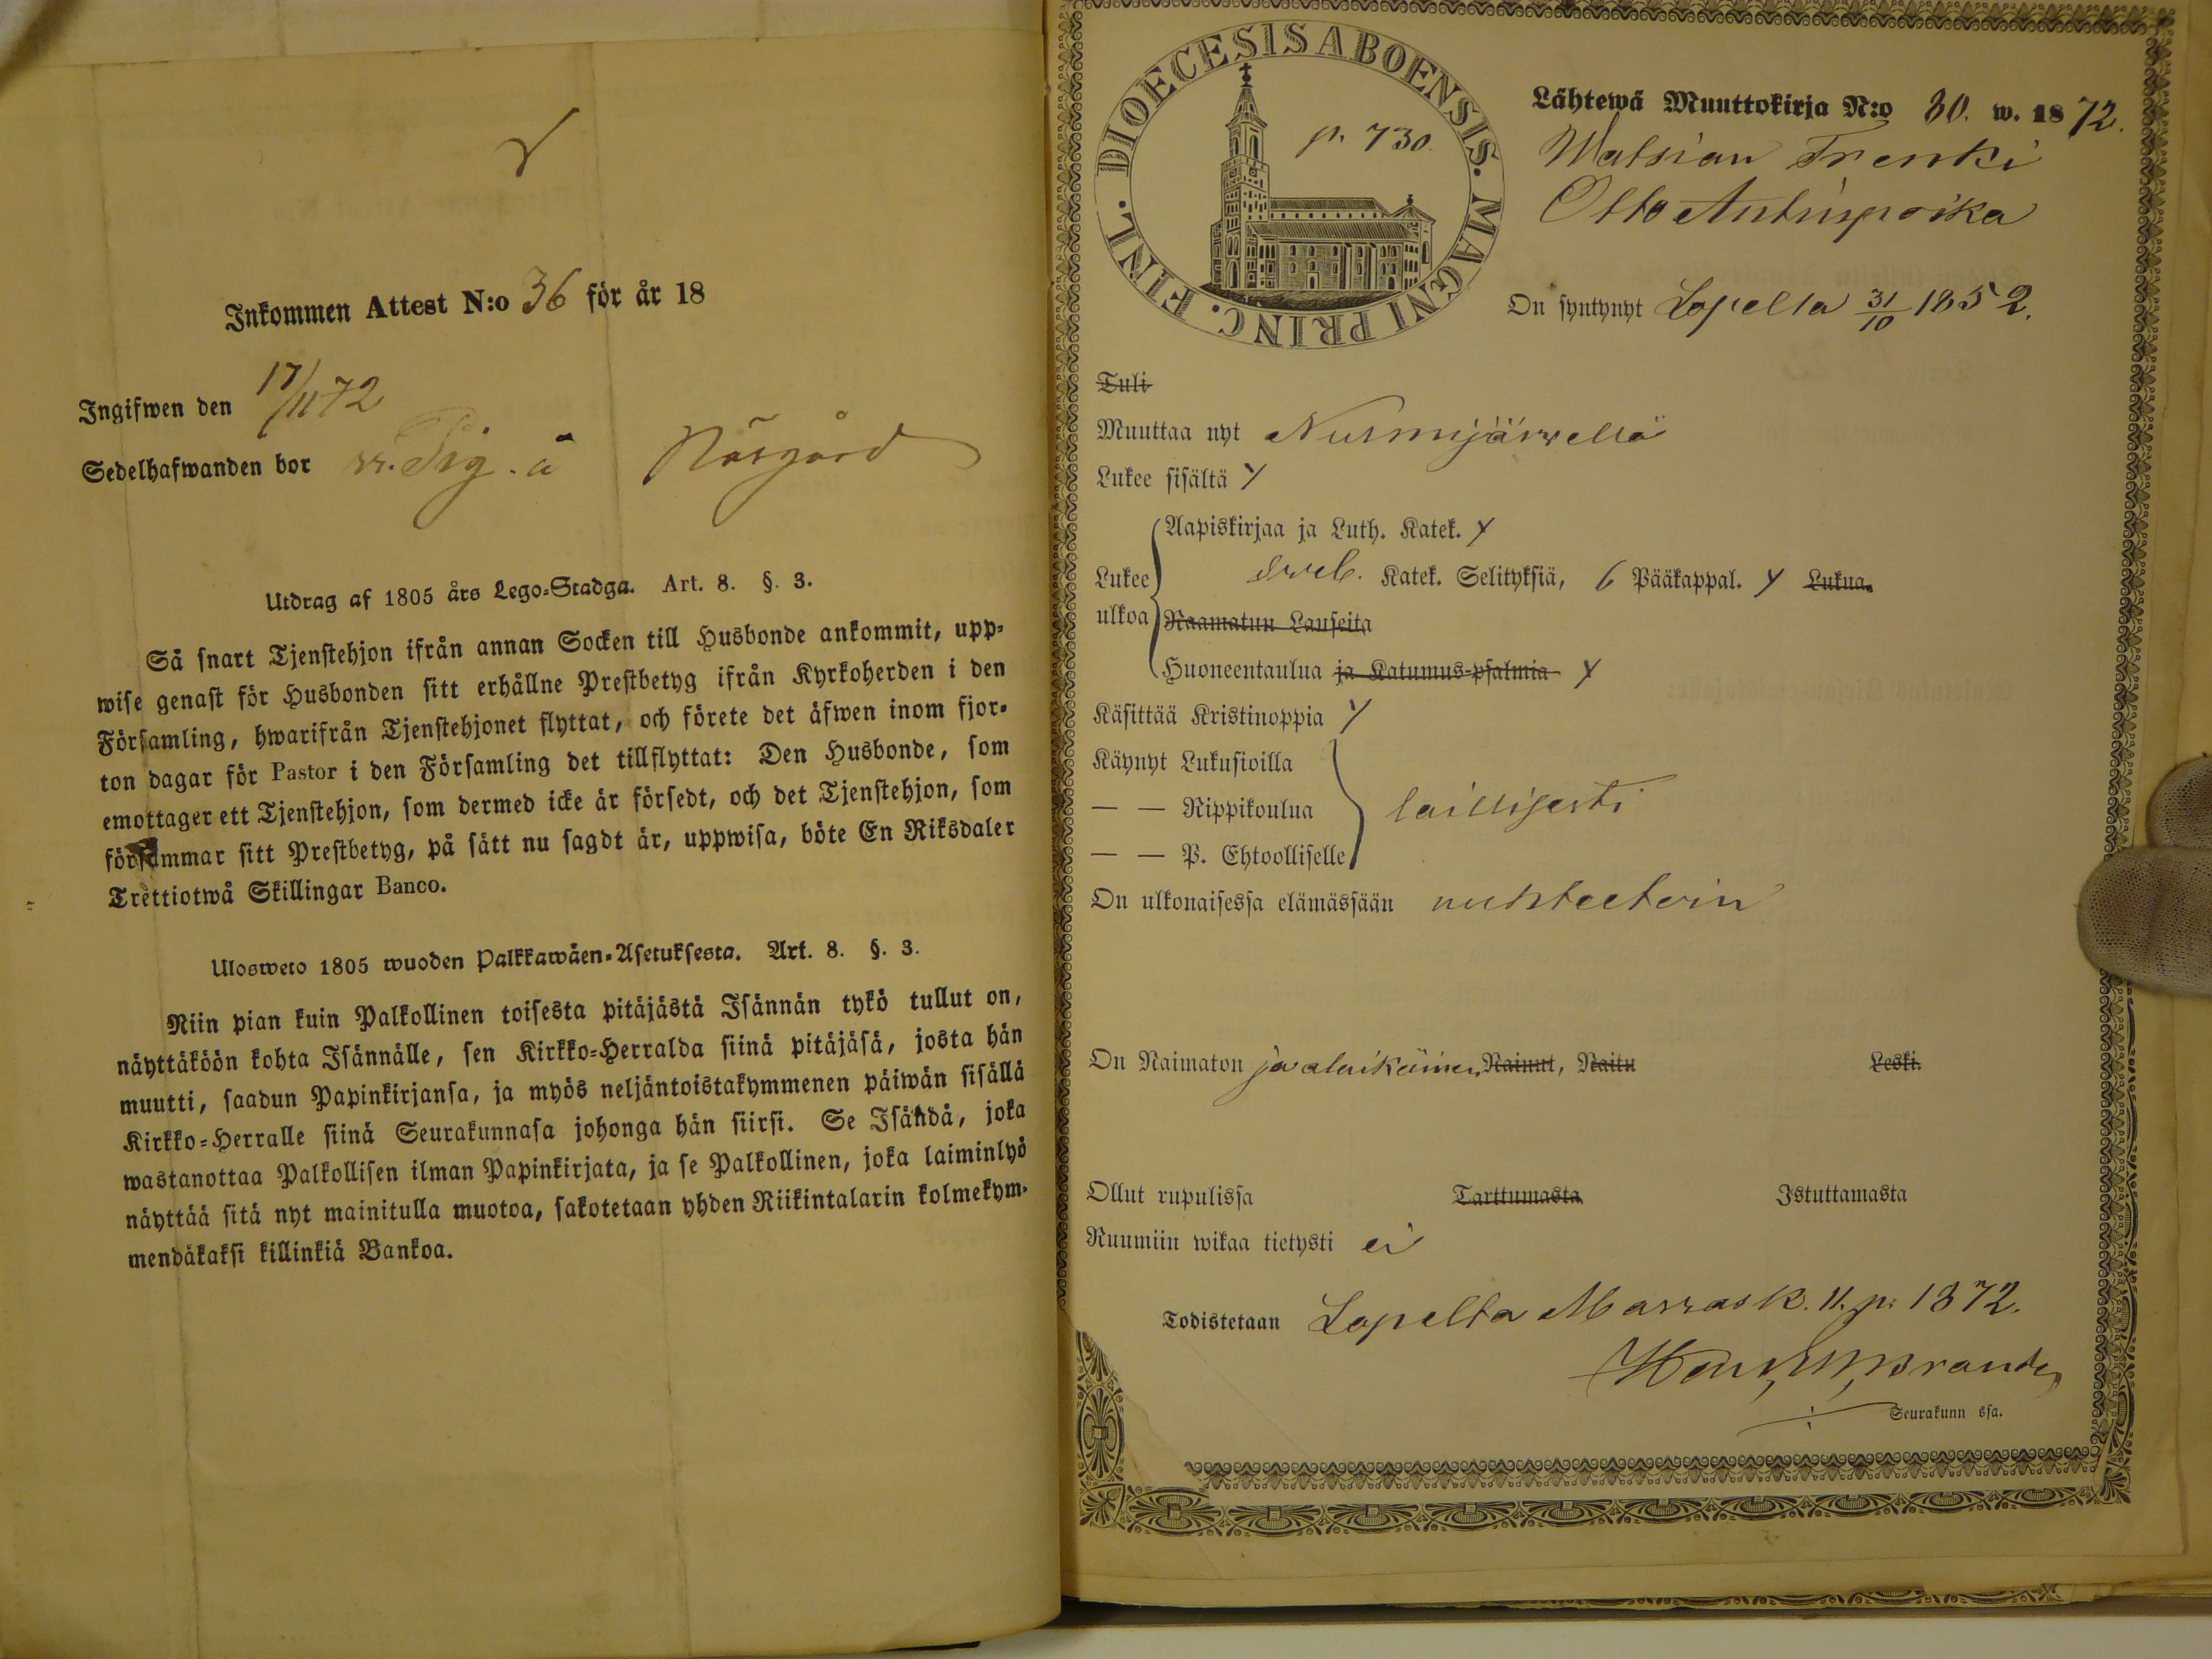 Inkommen Attest N:o 36 för år 18
Ingifwen den 17/11 72
Sedelhafwanden bor å Näsgård
Utdrag af 1805 års Lego-Stadga. Art. 8. §. 3.
Så snart Tjenstehjon ifrån annan Socken till Husbonde ankommit, upp-
wise genast för Husbonden sitt erhållne Prestbetyg ifrån Kyrkoherden i den
Församling, hwarifrån Tjenstehjonet flyttat, och förete det äfwen inom fjor-
ton dagar för Pastor i den Församling det tillflyttat: Den Husbonde, som
emottager ett Tjenstehjon, som dermed icke är försedt, och det Tjenstehjon, som
försummar sitt Prestbetyg, på sätt nu sagdt är, uppwisa, böte En Riksdaler
Trettiotwå Skillingar Banco.
Ulosweto 1805 wuoden Palkkawäen-Asetuksesta. Art. 8. §. 3.
Niin pian kuin Palkollinen toisesta pitäjästä Isännän tykö tullut on,
näyttäköön kohta Isännälle, sen Kirkko-Herralda siinä pitäjäsä, josta hän
muutti, saadun Papinkirjansa, ja myös neljäntoistakymmenen päiwän sisällä
Kirkko-Herralle siinä Seurakunnasa johonga hän siirsi. Se Isändä, joka
wastanottaa Palkollisen ilman Papinkirjata, ja se Palkollinen, joka laiminlyö
näyttää sitä nyt mainitulla muotoa, sakotetaan yhden Riikintalarin kolmekym-
mendäkaksi killinkiä Bankoa.
FINL. DIOECESIS ABOENSIS. MAGNI PRINC.
p. 730.
Lähtewä Muuttokirja N:o 80. w. 1872.
Watsian Trenki
Otto Antinpoika
On syntynyt Lopella 31/10 1852.
Tuli
Muuttaa nyt Nurmijärwellä
Lukee sisältä y
Aapiskirjaa ja Luth. Katek. y
Lukee Sveb. Katek. Selityksiä, 6 Pääkappal. y Lukua.
ulkoa Raamatun Lauseita
Huoneentaulua ja Katumus-psalmia y
Käsittää Kristinoppia y
Käynyt Lukusioilla
— — Rippikoulua laillisesti
— — P. Ehtoolliselle
On ulkonaisessa elämässään nuhteetoin
On Naimaton ja alaikäinen, Nainut, Naitu Leski.
Ollut rupulissa Tarttumasta Istuttamasta
Ruumiin wikaa tietysti ei
Todistetaan Lopella Marrask. 11. p. 1872.
Seurakunn ssa.